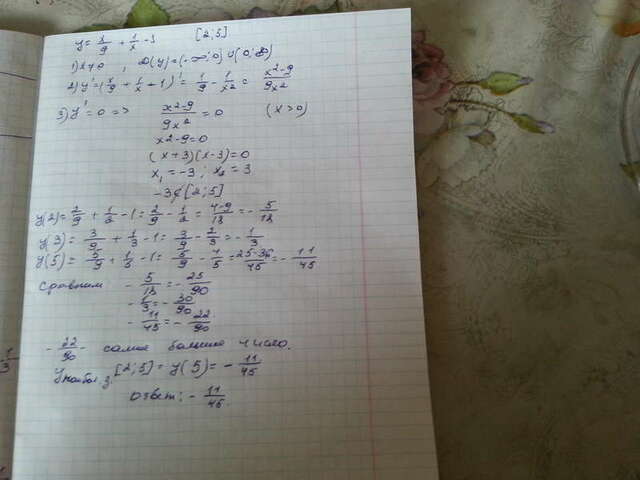 y = x/9 + 1/x - 3 [2;5]
1) x≠0, D(y)=(-∞;0)∪(0;∞)
2) y' = (x/9 + 1/x + 1)' = 1/9 - 1/x² = (x²-9)/9x²
3) y' = 0 => (x²-9)/9x² = 0 (x>0)
x²-9=0
(x+3)(x-3)=0
x₁=-3; x₂=3
-3∉[2;5]
y(2) = 2/9 + 1/2 - 1 = 2/9 - 1/2 = (4-9)/18 = -5/18
y(3) = 3/9 + 1/3 - 1 = 3/9 - 2/3 = -1/3
y(5) = 5/9 + 1/5 - 1 = 5/9 - 4/5 = (25-36)/45 = -11/45
Сравним -5/18 = -25/90
-1/3 = -30/90
-11/45 = -22/90
-22/90 - самое большое число.
yнаибол.з. [2;5] = y(5) = -11/45
Ответ: -11/45.